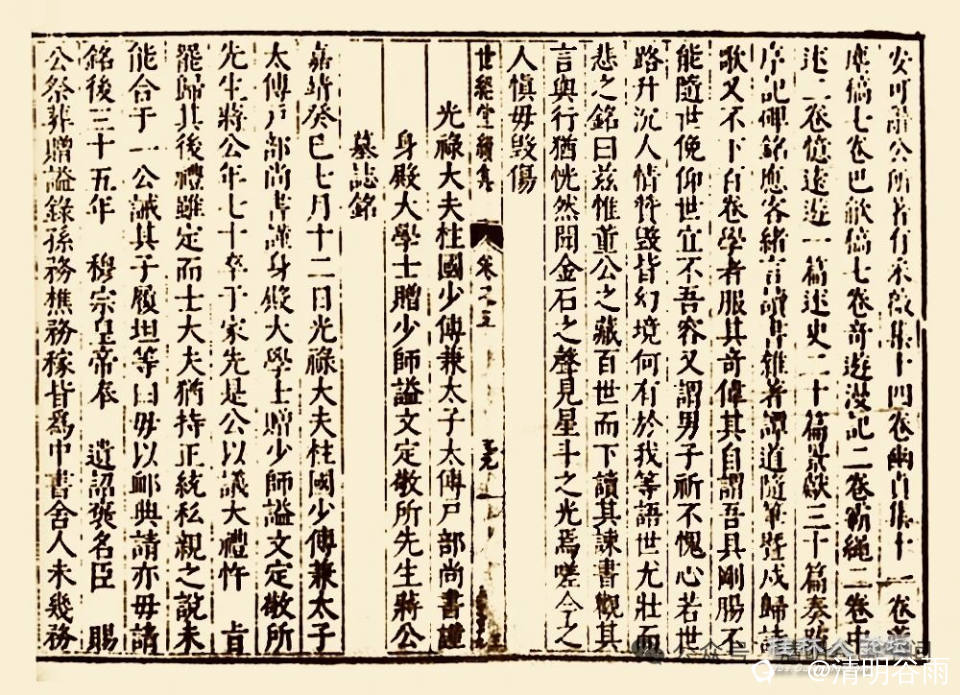 安可謂公所著有采薇集十四卷幽貞集十一卷
稿七卷邕歈稿七卷奇遊漫記二卷蒭繩二卷中
述二卷億遠遊一篇述史二十篇景獻三十篇奏疏
序記碑銘應客緒言讀書雜著譚道隨筆暨戍歸詩
歌又不下百卷學者服其奇偉其自謂吾具剛腸不
能隨世俛仰世宜不吾容又謂男子祈不愧心若世
路升沉人情贊毀皆幻境何有於我等語世尤壯而
悲之銘曰茲惟董公之藏百世而下讀其諫書觀其
言與行猶恍然聞金石之聲見星斗之光焉嗟今之
人慎毋毀傷
世經堂續集 卷之五
光祿大夫柱國少傅兼太子太傅戶部尚書謹
身殿大學士贈少師謚文定敬所先生蔣公
墓誌銘
嘉靖癸巳七月十二日光祿大夫柱國少傅兼太子
太傅戶部尚書謹身殿大學士贈少師謚文定敬所
先生蔣公年七十卒于家先是公以議大禮忤 旨
罷歸其後禮雖定而士大夫猶持正統私親之說未
能合于一公誡其子履坦等曰毋以卹典請亦毋請
銘後三十五年 穆宗皇帝奉 遺詔褒名臣 賜
公祭葬贈謚錄孫務樵務稼皆爲中書舍人未幾務
@清明谷雨